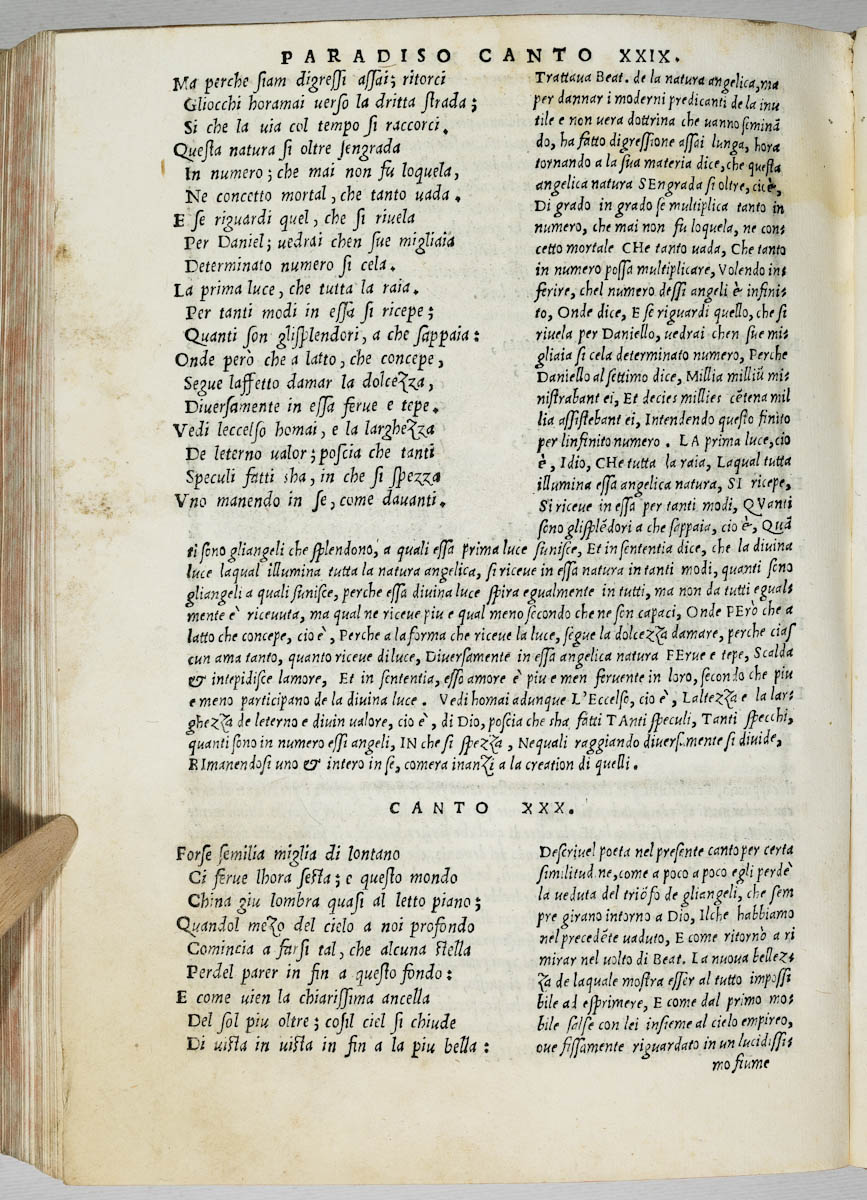 PARADISO CANTO XXIX.
Ma perche siam digressi assai; ritorci
Gliocchi horamai uerso la dritta strada;
Si che la uia col tempo si raccorci.
Questa natura si oltre sengrada
In numero; che mai non fu loquela,
Ne concetto mortal, che tanto uada.
E se riguardi quel, che si riuela
Per Daniel; uedrai chen sue migliaia
Determinato numero si cela.
La prima luce, che tutta la raia.
Per tanti modi in essa si ricepe;
Quanti son glisplendori, a che sappaia:
Onde però che a latto, che concepe,
Segue laffetto damar la dolcezza,
Diuersamente in essa ferue e tepe.
Vedi leccelso homai, e la larghezza
De leterno ualor; poscia che tanti
Speculi fatti sha, in che si spezza
Vno manendo in se, come dauanti.
Trattaua Beat. de la natura angelica, ma
per dannar i moderni predicanti de la inu
tile e non uera dottrina che uanno seminã
do, ha fatto digressione assai lunga, hora
tornando a la sua materia dice, che questa
angelica natura SEngrada si oltre, cioè,
Di grado in grado se multiplica tanto in
numero, che mai non fu loquela, ne con-
cetto mortale CHe tanto uada, Che tanto
in numero possa multiplicare, Volendo in-
ferire, chel numero dessi angeli è infini-
to, Onde dice, E se riguardi quello, che si
riuela per Daniello, uedrai chen sue mi-
gliaia si cela determinato numero, Perche
Daniello al settimo dice, Millia milliũ mi-
nistrabant ei, Et decies millies cẽtena mil
lia assistebant ei, Intendendo questo finito
per linfinito numero. LA prima luce, cio
è, Idio, CHe tutta la raia, Laqual tutta
illumina essa angelica natura, SI ricepe,
Si riceue in essa per tanti modi, QVanti
sono glisplẽdori a che sappaia, cio è, Quã
ti sono gliangeli che splendono, a quali essa prima luce sunisce, Et in sententia dice, che la diuina
luce laqual illumina tutta la natura angelica, si riceue in essa natura in tanti modi, quanti sono
gliangeli a quali sunisce, perche essa diuina luce spira egualmente in tutti, ma non da tutti egual-
mente è riceuuta, ma qual ne riceue piu e qual meno secondo che ne son capaci, Onde PErò che a
latto che concepe, cio è, Perche a la forma che riceue la luce, segue la dolcezza damare, perche cias
cun ama tanto, quanto riceue di luce, Diuersamente in essa angelica natura FErue e tepe, Scalda
& intepidisce lamore, Et in sententia, esso amore è piu e men feruente in loro, secondo che piu
e meno participano de la diuina luce. Vedi homai adunque L'Eccelso, cio è, Laltezza e la lar-
ghezza de leterno e diuin ualore, cio è, di Dio, poscia che sha fatti TAnti speculi, Tanti specchi,
quanti sono in numero essi angeli, IN che si spezza, Nequali raggiando diuersamente si diuide,
RImanendosi uno & intero in se, comera inanzi a la creation di quelli.
CANTO XXX.
Forse semilia miglia di lontano
Ci ferue lhora sesta; e questo mondo
China giu lombra quasi al letto piano;
Quandol mezo del cielo a noi profondo
Comincia a farsi tal, che alcuna stella
Perdel parer in fin a questo fondo:
E come uien la chiarissima ancella
Del sol piu oltre; cosil ciel si chiude
Di uista in uista in fin a la piu bella:
Descriuel poeta nel presente canto per certa
similitudine, come a poco a poco egli perdè
la ueduta del triõfo de gliangeli, che sem
pre girano intorno a Dio, Ilche habbiamo
nel precedẽte ueduto, E come ritornò a ri
mirar nel uolto di Beat. La nuoua bellez-
za de laquale mostra esser al tutto impossi
bile ad esprimere, E come dal primo mo-
bile salse con lei insieme al cielo empireo,
oue fissamente riguardato in un lucidissi-
mo fiume